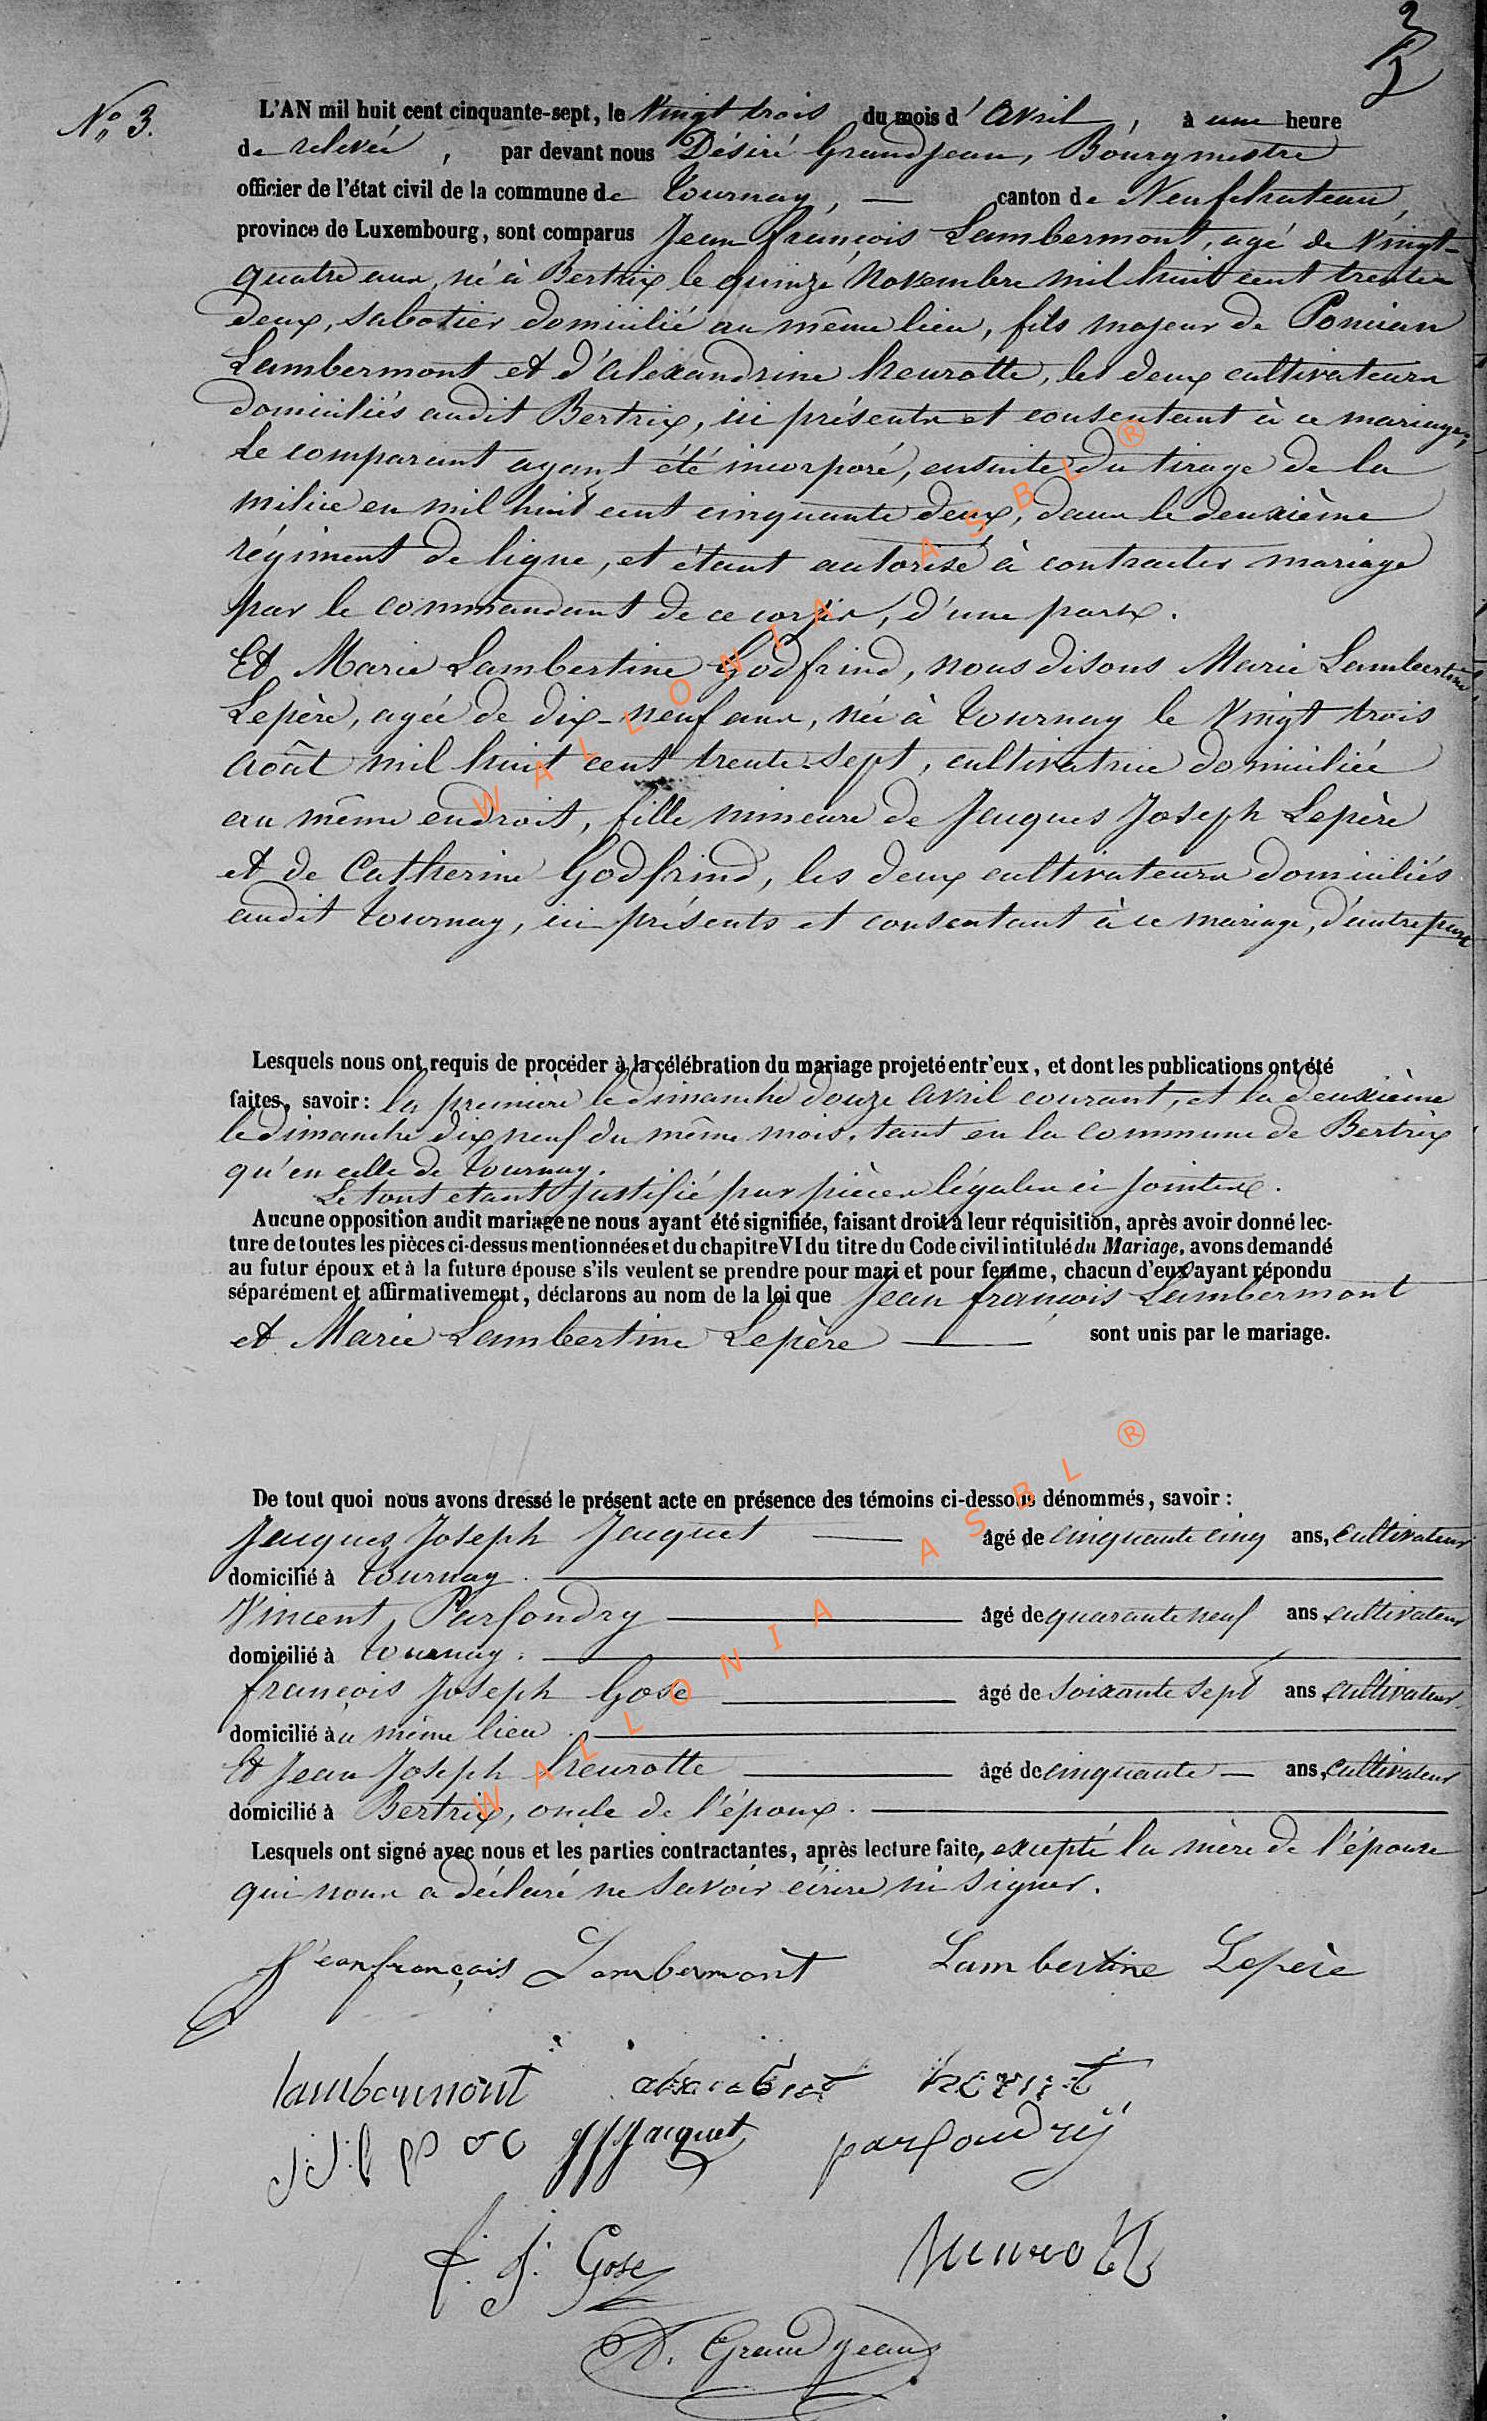 2
N° 3.
L'AN mil huit cent cinquante-sept, le Vingt trois du mois d'avril, à une heure
de relevée, par devant nous Désiré Grandjean, Bourgmestre
officier de l'état civil de la commune de Tournay, — canton de Neufchateau,
province de Luxembourg, sont comparus Jean françois Lambermont, agé de Vingt-
quatre ans, né à Bertrix le quinze Novembre mil huit cent trente
deux, sabotier domicilié au même lieu, fils majeur de Poncian
Lambermont et d'alexandrine heurotte, les deux cultivateurs
domiciliés audit Bertrix, ici présents et consentant à ce mariage,
Le comparant ayant été incorporé, ensuite du tirage de la
milice en mil huit cent cinquante deux, dans le deuxième
régiment de ligne, et étant autorisé à contracter mariage
par le commandant de ce corps, d'une part.
Et Marie Lambertine Godfrind, nous disons Marie Lambertine
Lepère, agée de dix-neuf ans, née à Tournay le Vingt trois
août mil huit cent trente-sept, cultivatrice domiciliée
au même endroit, fille mineure de Jacques Joseph Lepère
et de Catherine Godfrind, les deux cultivateurs domiciliés
audit Tournay, ici présents et consentant à ce mariage, d'autre part
Lesquels nous ont requis de procéder à la célébration du mariage projeté entr'eux, et dont les publications ont été
faites, savoir: la première le dimanche douze avril courant, et la deuxième
le dimanche dix neuf du même mois, tant en la commune de Bertrix
qu'en celle de Tournay.
Le tout etant justifié par pièces légales ci jointes.
Aucune opposition audit mariage ne nous ayant été signifiée, faisant droit à leur réquisition, après avoir donné lec-
ture de toutes les pièces ci-dessus mentionnées et du chapitre VI du titre du Code civil intitulé du Mariage, avons demandé
au futur époux et à la future épouse s'ils veulent se prendre pour mari et pour femme, chacun d'eux ayant répondu
séparément et affirmativement, déclarons au nom de la loi que Jean françois Lambermont
et Marie Lambertine Lepère — sont unis par le mariage.
De tout quoi nous avons dressé le présent acte en présence des témoins ci-dessous dénommés, savoir :
Jacques Joseph Jacquet — âgé de cinquante cinq ans, cultivateur
domicilié à Tournay.
Vincent, Parfondry — âgé de quarante neuf ans cultivateur
domicilié à Tournay.
françois Joseph Gose — âgé de soixante sept ans cultivateur
domicilié à u même lieu.
Et Jean Joseph heurotte — âgé de cinquante — ans, cultivateur
domicilié à Bertrix, oncle de l'époux.
Lesquels ont signé avec nous et les parties contractantes, après lecture faite, excepté la mère de l'épouse
qui nous a déclaré ne savoir écrire ni signer.
Jeanfrançois Lambermont Lambertine Lepère
lambermont
JJ Jacquet parfondrÿ
f. j. Gose heurotte
D. Grandjean
WALLONIA ASBL ®
WALLONIA ASBL ®